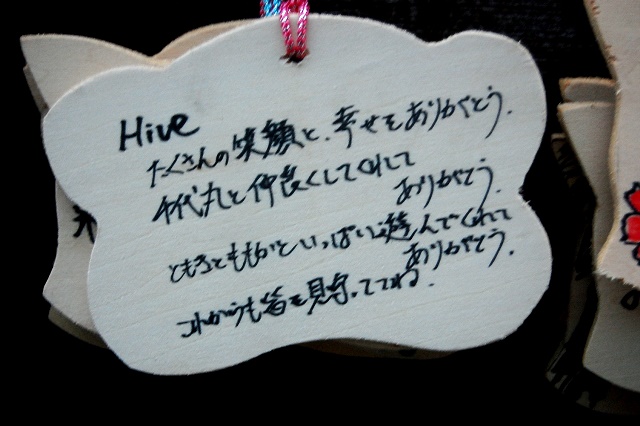 Hive
たくさんの笑顔と、幸せをありがとう.
千代丸と仲良くしてくれて
ありがとう.
ともろとももかといっぱい遊んでくれて
ありがとう.
これからも皆を見守っててね.